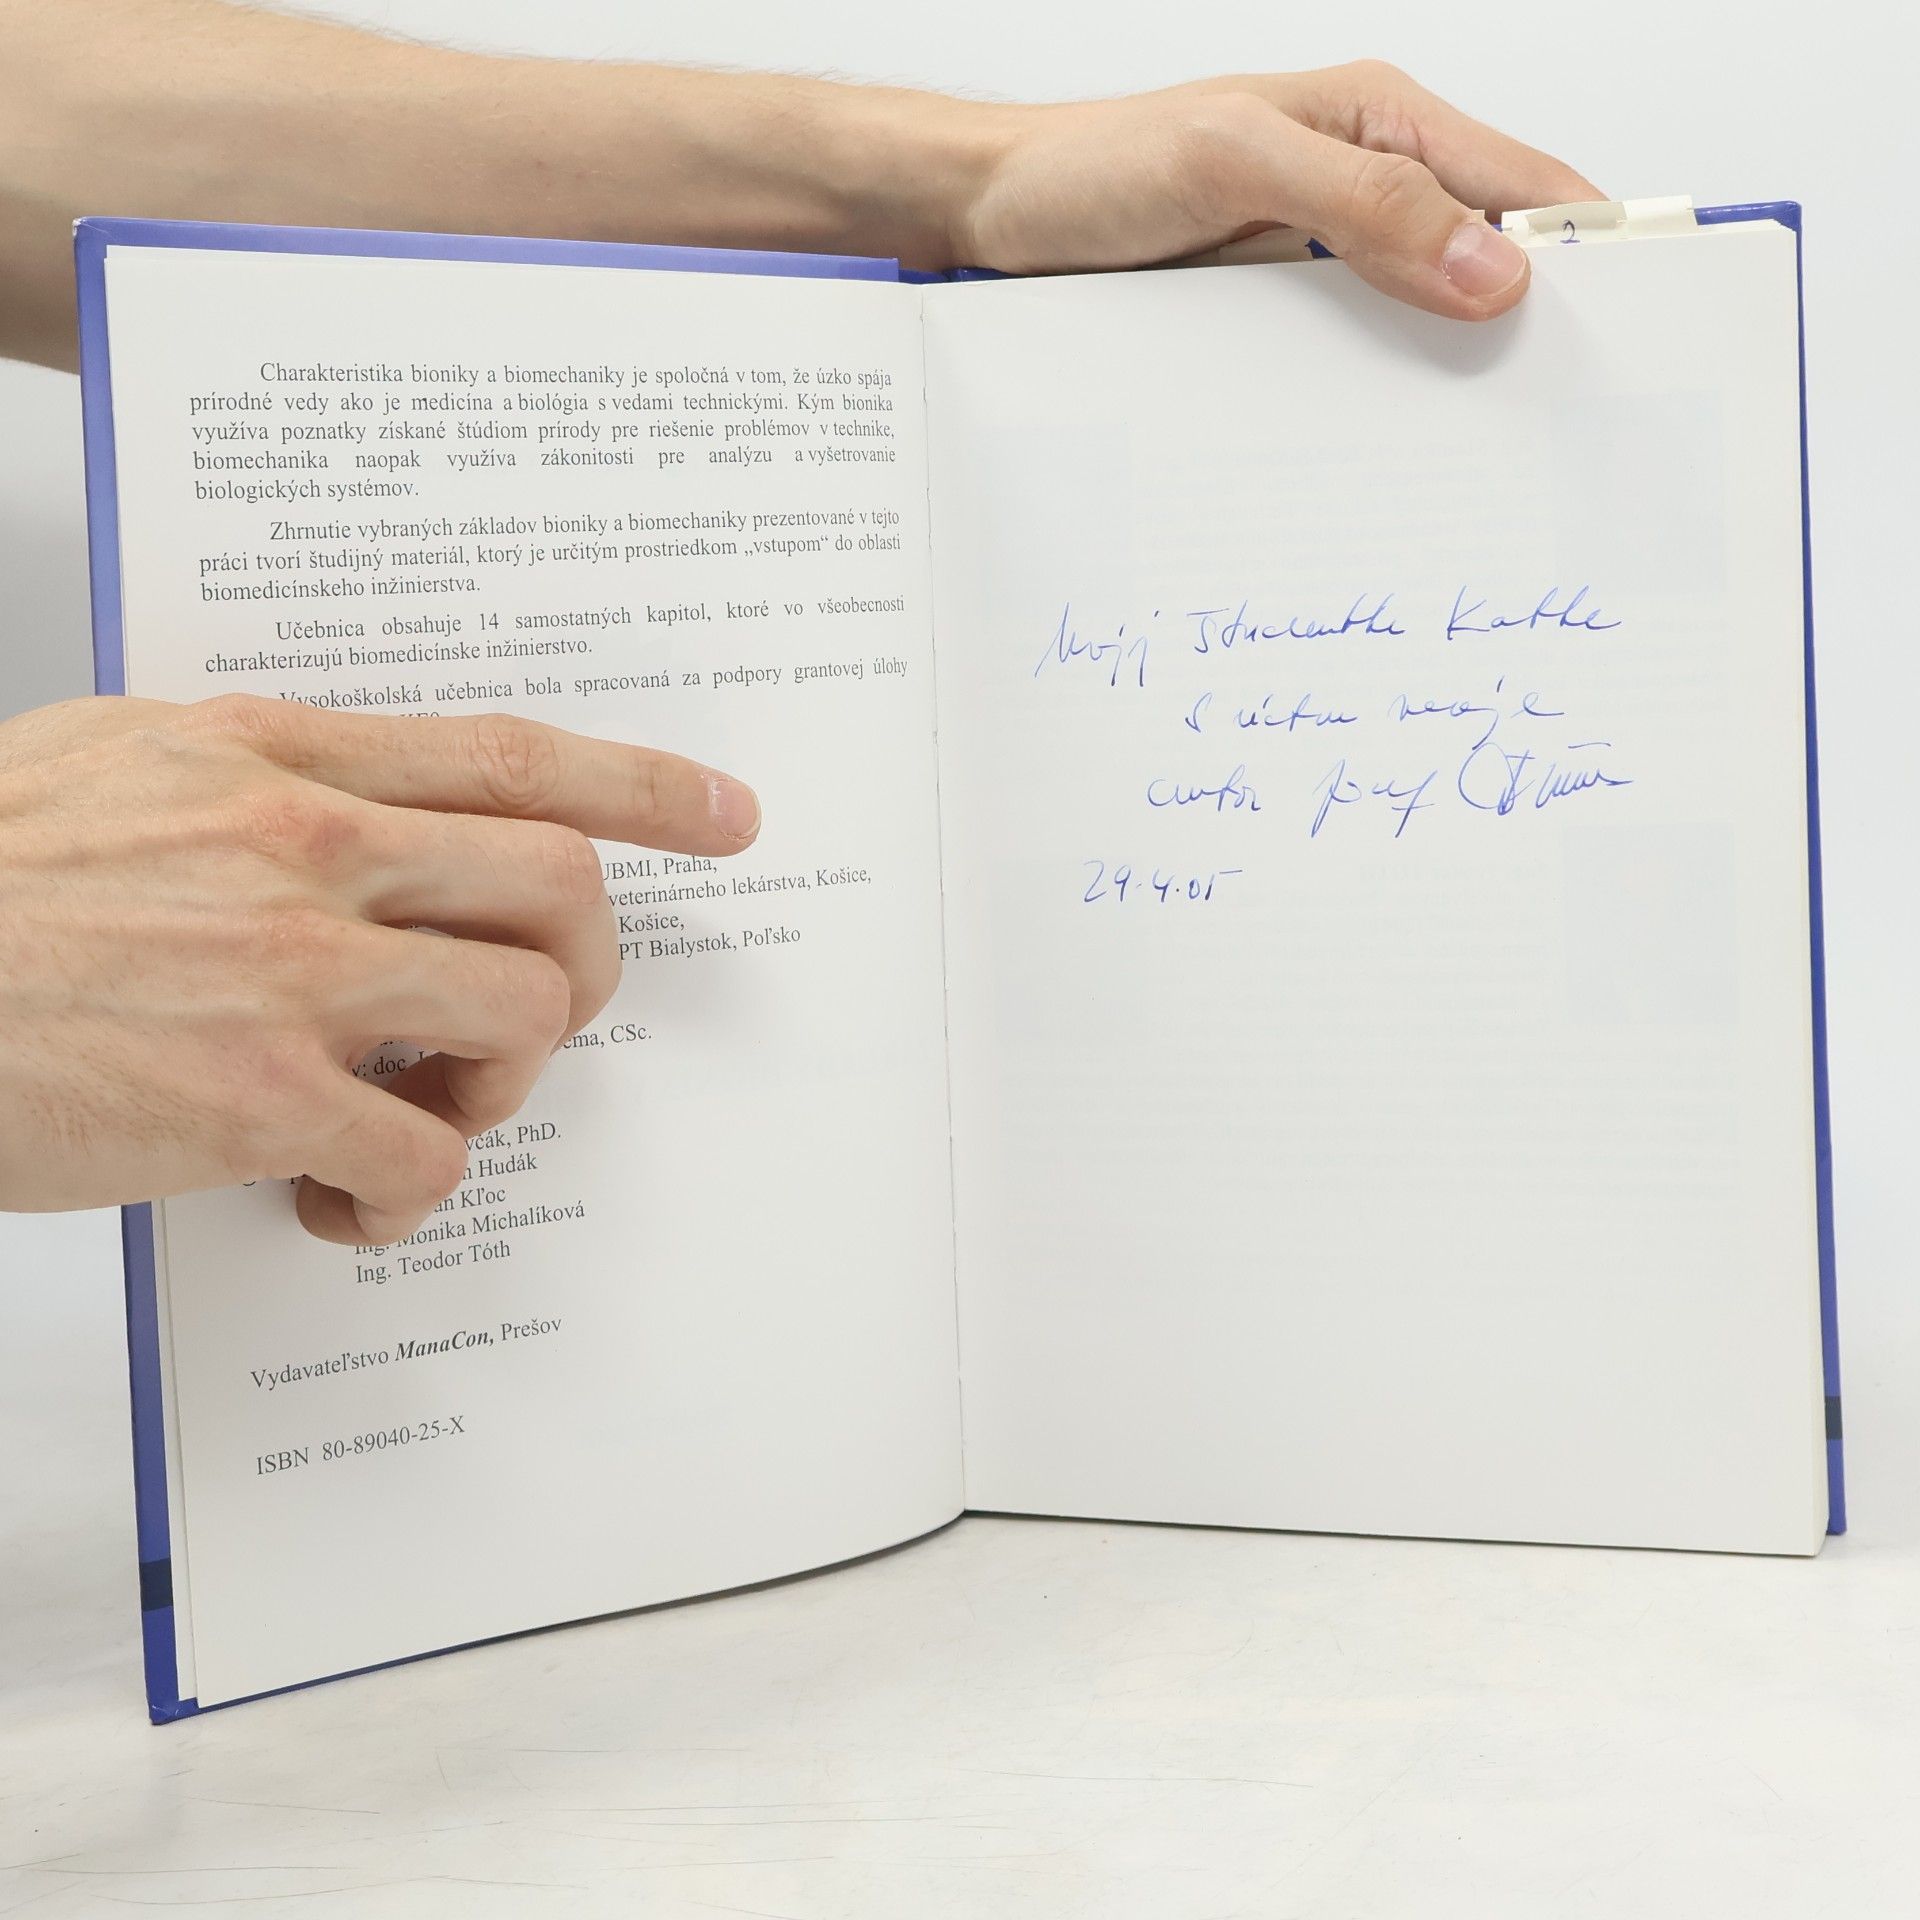 Charakteristika bioniky a biomechaniky je spoločná v tom, že úzko spája
prírodné vedy ako je medicína a biológia s vedami technickými. Kým bionika
využíva poznatky získané štúdiom prírody pre riešenie problémov v technike,
biomechanika naopak využíva zákonitosti pre analýzu a vyšetrovanie
biologických systémov.
Zhrnutie vybraných základov bioniky a biomechaniky prezentované v tejto
práci tvorí študijný materiál, ktorý je určitým prostriedkom „vstupom“ do oblasti
biomedicínskeho inžinierstva.
Učebnica obsahuje 14 samostatných kapitol, ktoré vo všeobecnosti
charakterizujú biomedicínske inžinierstvo.
Vysokoškolská učebnica bola spracovaná za podpory grantovej úlohy
UBMI, Praha,
veterinárneho lekárstva, Košice,
Košice,
PT Bialystok, Poľsko
CSc.
doc.
PhD.
Hudák
Kľoc
Ing. Monika Michalíková
Ing. Teodor Tóth
Vydavateľstvo ManaCon, Prešov
ISBN 80-89040-25-X
2
Mojej študentke Katke
s úctou venuje
autor Jozef
29.4.05